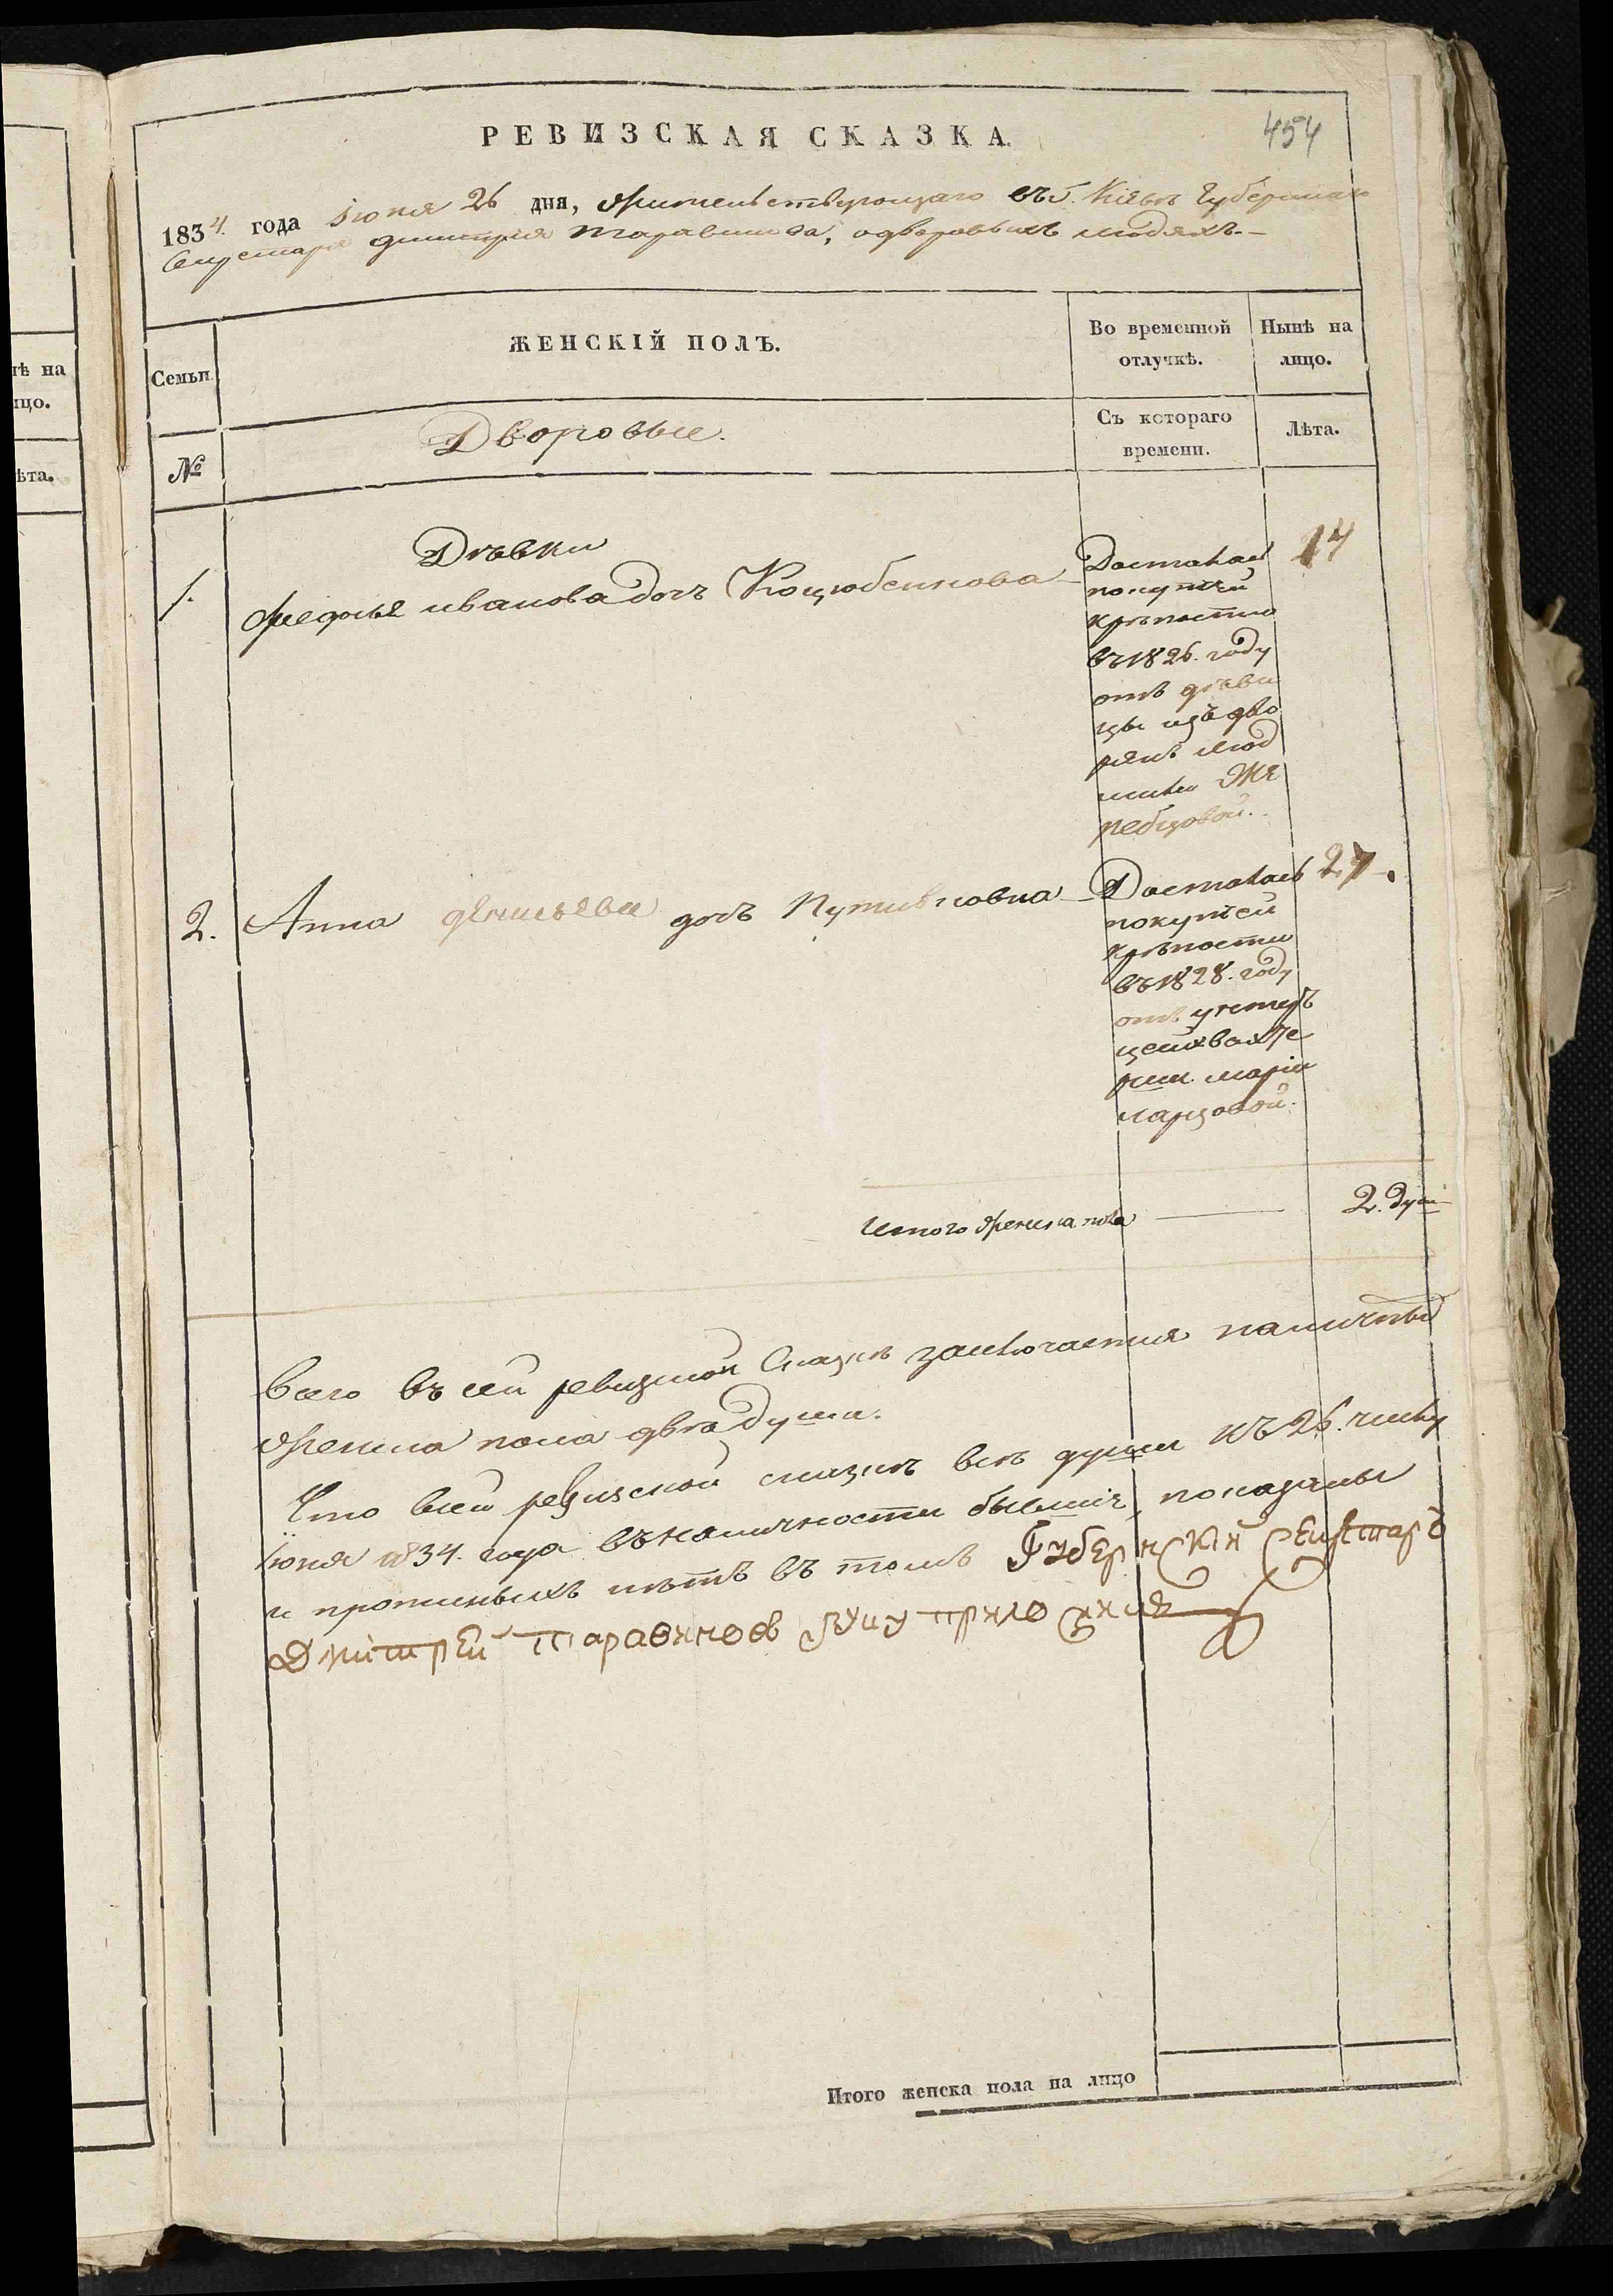 РЕВИЗСКАЯ СКАЗКА.
454
1834. года Іюня 26 дня, жительствующаго въ г. Кіевѣ Губернскаго
Секретаря Димитрія Таравинова, о дворовыхъ людяхъ.-
Семьи.
ЖЕНСКІЙ ПОЛЪ.
Во временной отлучкѣ.
Нынѣ на лицо.
№
Дворовые.
Съ котораго времени.
Лѣта.
Дѣвки
1. Федосья Иванова дочь Коцюбенкова
Досталась
покупчей
крѣпостью
въ 1826. году
отъ дѣви
цы изъ дво
рянъ Люд
милы Же
ребцовой.
14
2. Анна дочь Путивловна
Досталась
покупчей
крѣпости
въ 1828. году
отъ
цейхвахте
рши Маріи
27.
Итого женска пола
2. души
Всего въ сей ревизской сказкѣ заключается наличныхъ
женска пола двѣ души.
Что въ сей ревизской сказкѣ всѣ души къ 26. числу
Іюня 1834. года въ наличности бывшіе, показаны
и прописныхъ нѣтъ въ томъ Губернскій Секретарь
Дмитрей Таравиновъ руку приложилъ
Итого женска пола на лицо
нѣ на
ицо.
ѣта.